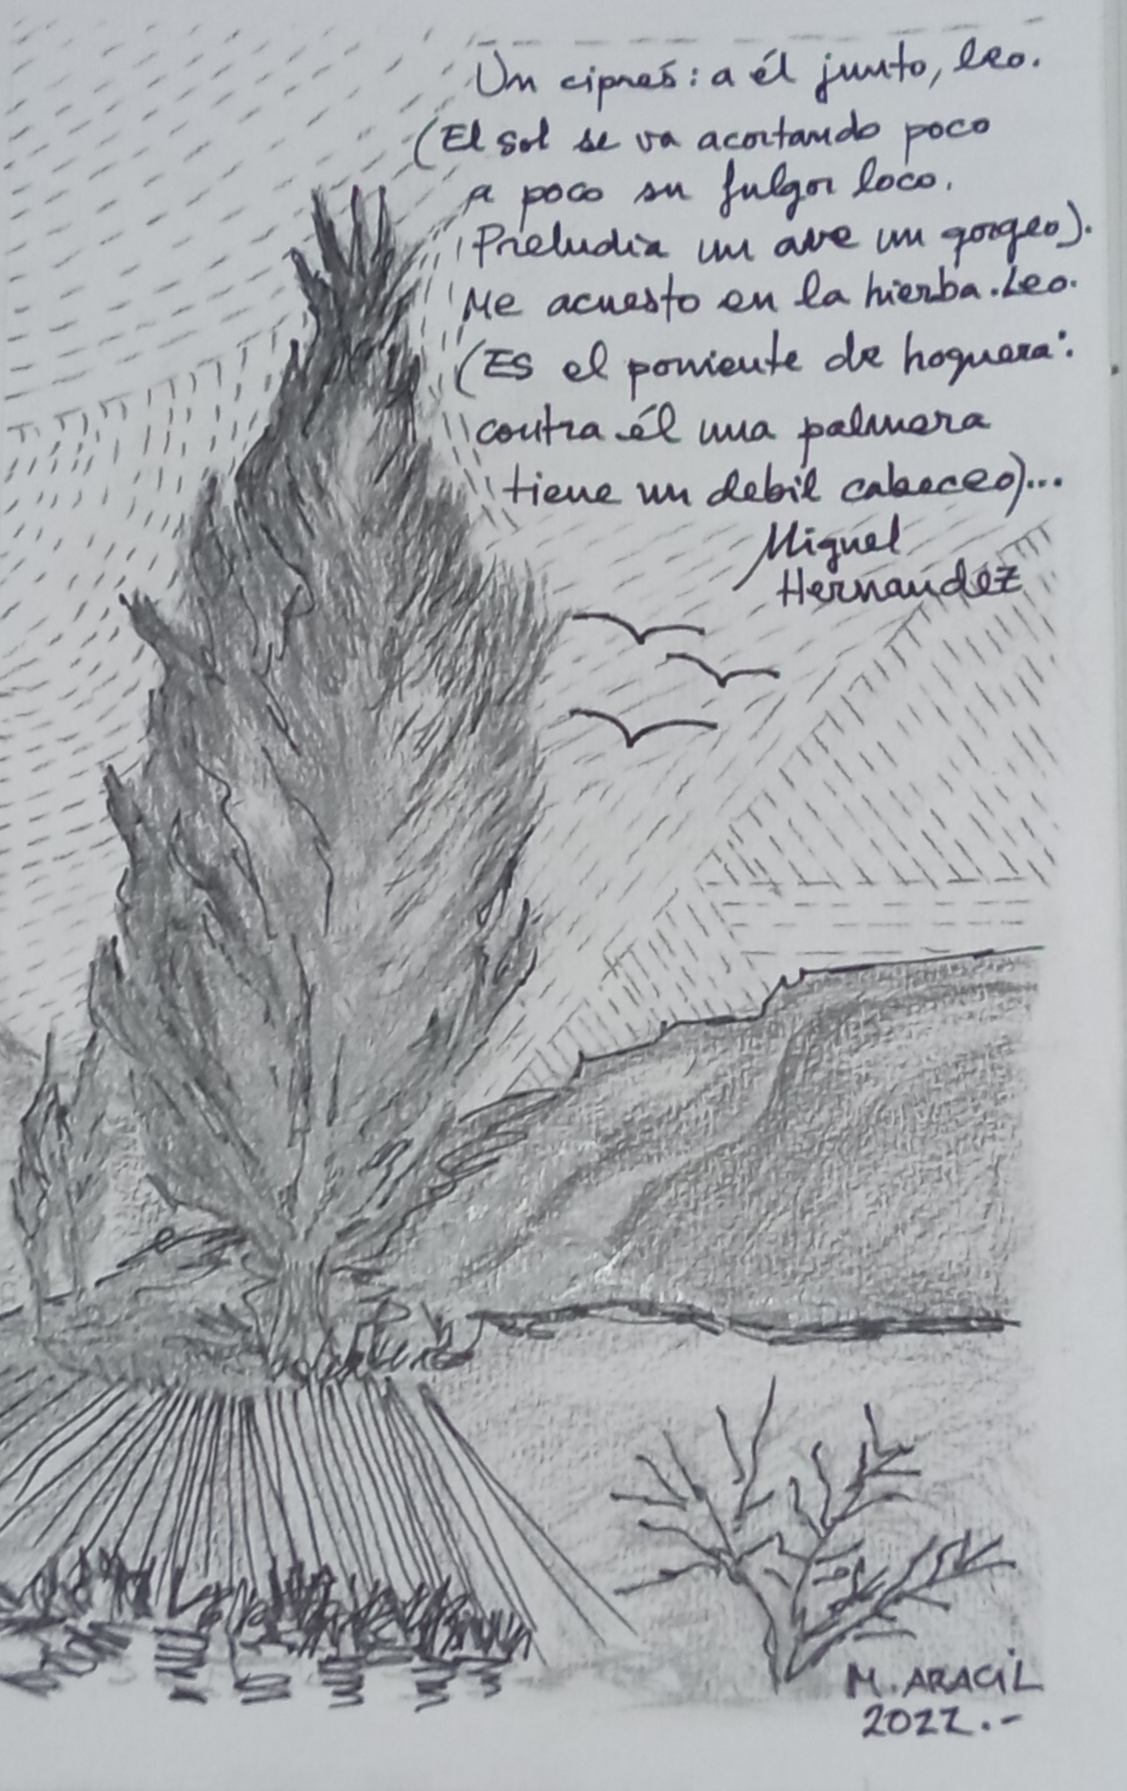 Un ciprés: a él junto, leo.
(El sol se va acortando poco
a poco su fulgor loco.
Preludia un ave un gorgeo).
Me acuesto en la hierba. Leo.
(Es el poniente de hoguera:
contra él una palmera
tiene un debil cabeceo)...
Miguel
Hernandez
M. ARACIL
2022.-